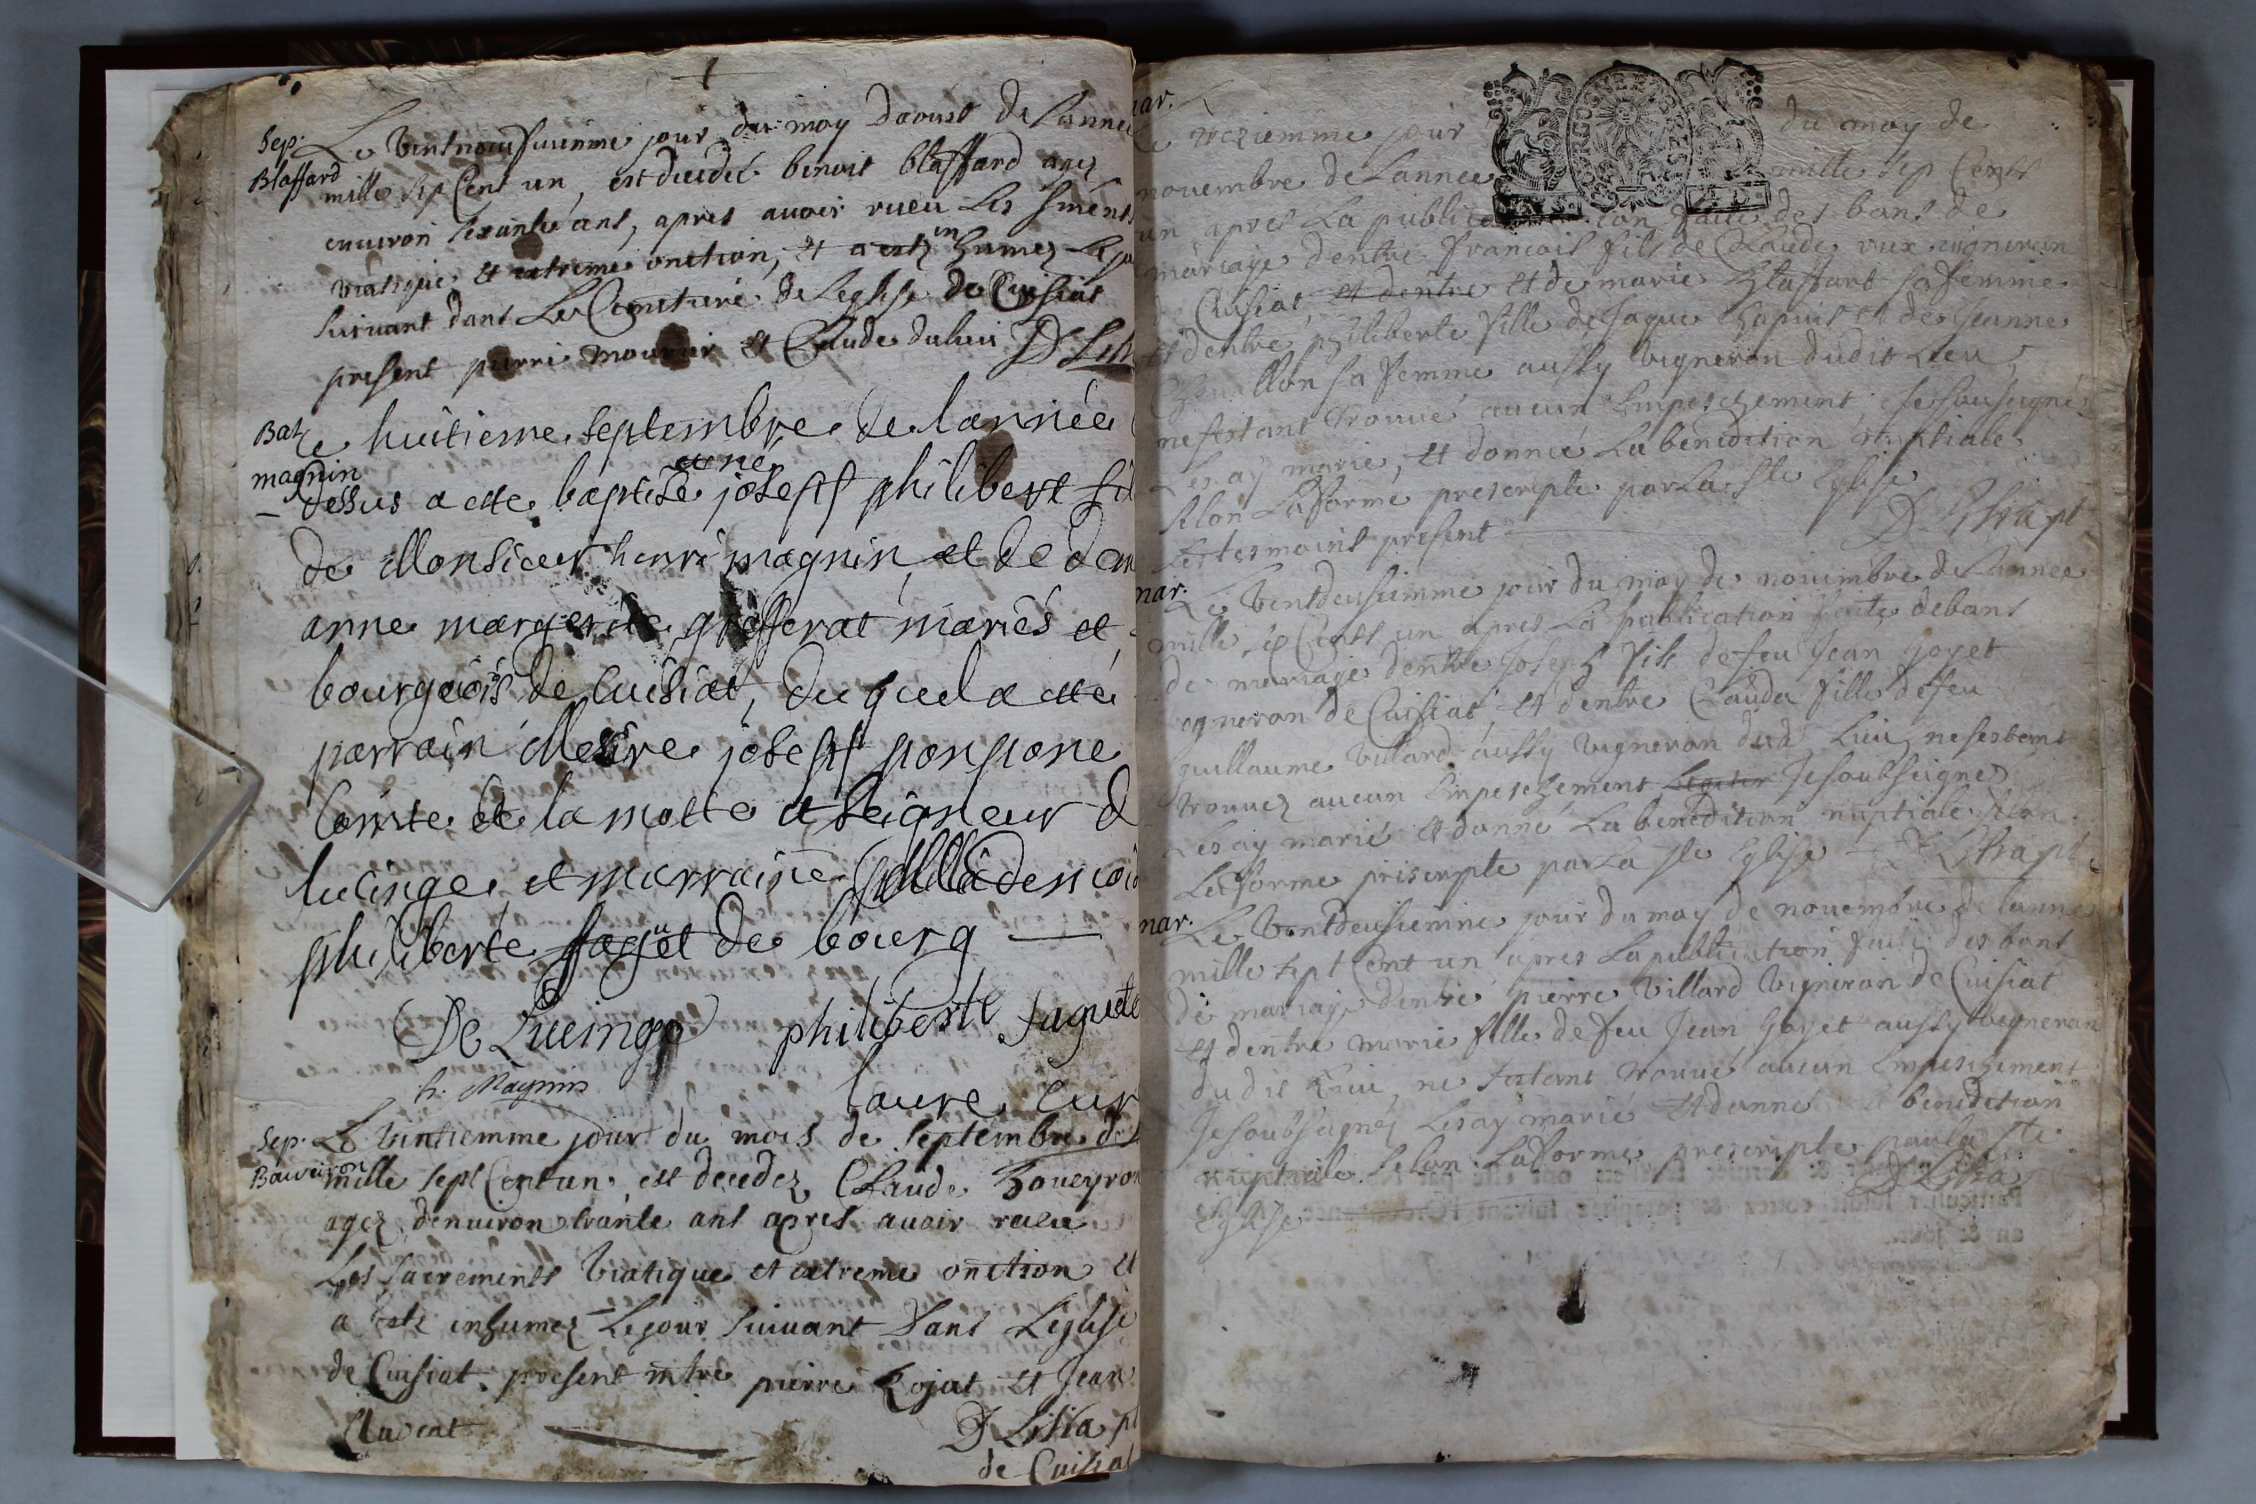 Sep.
Blaffard
Le Vintneufuieme jour du moy daoust de Lanneé
mille sep Cent un, est decedé benoit blaffard agez
enuiron sexante ans, apres auoir rueu Les smens
viatique et extreme onction, et a esté inhumez Le jou
suiuant dans Le Cemitiere de Leglise de Cuisiat
present pierre et Claude dubuis
Bat.
magnin
Le huitieme septembre de lannée
dessus a ette baptisé joseph philibert fil
de Monsieur henri magnin et de dem
anne margerite grifferat mariés et
bourgeois de Cuisiat, duquel a etté
parrain Messire joseph ponpone
Comte de la motte et Seigneur d
lucinge, et marraine Mademoi
philiberte faguët de bourg
De Lucinge philiberte faguete
h. Magnin
faure Cur
Sep.
Bauveiron
Le Vintiemme jour du mois de septembre de L
mille sept Cent un, est decedez Claude boueyron
agez denuiron trante ans apres auoir rueu
Les sacrements Viatique et extreme onction et
a esté inhumez Le jour suiuant dans Leglise
de Cuisiat present mtre pierre Rojat et Jean
Auocat
D Lisia pt
de Cuisiat
mar.
Le treziemme jour du moy de
nouembre de Lannee mille sep Cents
un, apres La publication faite des bans de
mariage dentre francois fils de Claude vigneron
de Cuisiat, et dentre et de marie blaffart sa femme
et dentre philiberte fille de Jaque Chapuis et de Jeanne
sa femme aussy Vigneron dudit Lieu,
ne sestant trouué aucun Empeschement, Je soussigné
Les ay marié, et donneé La benediction nuptiale
selon La forme prescripte par La ste Eglise
Les tesmoins present D Lisia pt
mar.
Le Ventdeusiemme jour du moy de nouembre de Lannee
mille sep Cents un apres La publication faite de bans
de mariage dentre Joseph fils de feu Jean goyet
vigneron de Cuisiat, et dentre Clauda fille de feu
guillaume Vulard aussy Vigneron dud. Lieu, ne sestant
trouuez aucun Empeschement Je soubsigné
Les ay marié et donné La benediction nuptiale selon
La forme prescripte par La ste Eglise D Lisia pt
mar.
Le Ventdeusiemme jour du moy de nouembre de Lannee
mille sept Cent un apres La publication faite des bans
de mariage dentre pierre Villard Vigneron de Cuisiat
et dentre marie fille de feu Jean goyet aussy Vigneron
dudit Lieu, ne sestant trouué aucun Empeschement
Je soubsignez Les ay marié et donné La benediction
nuptiale selon La forme prescripte par La ste
Eglise D Lisia